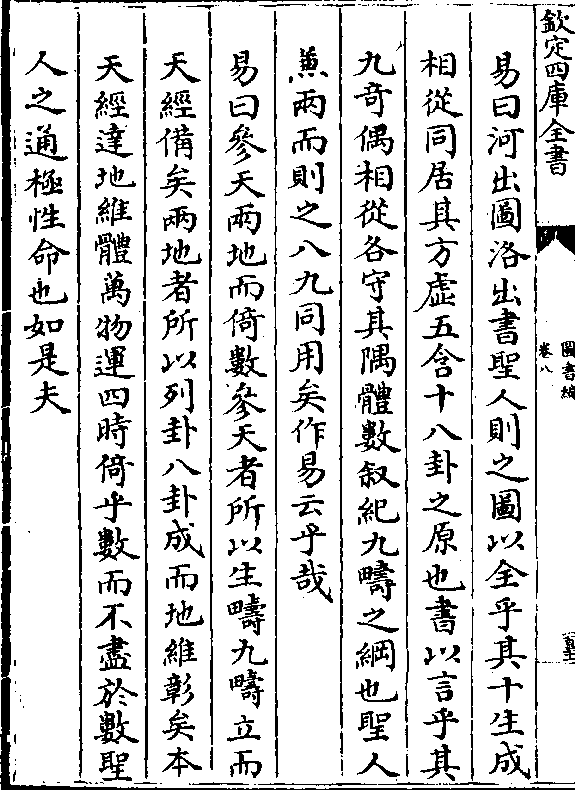 欽定四庫全書
圖書編
卷八
易曰河出圖洛出書聖人則之圖以全乎其十生成
相從同居其方虛五含十八卦之原也書以言乎其
九竒偶相從各守其隅體數叙紀九疇之綱也聖人
兼兩而則之八九同用矣作易云乎哉
易曰參天兩地而倚數參天者所以生疇九疇立而
天經備矣兩地者所以列卦八卦成而地維彰矣本
天經達地維體萬物運四時倚乎數而不盡於數聖
人之通極性命也如是夫